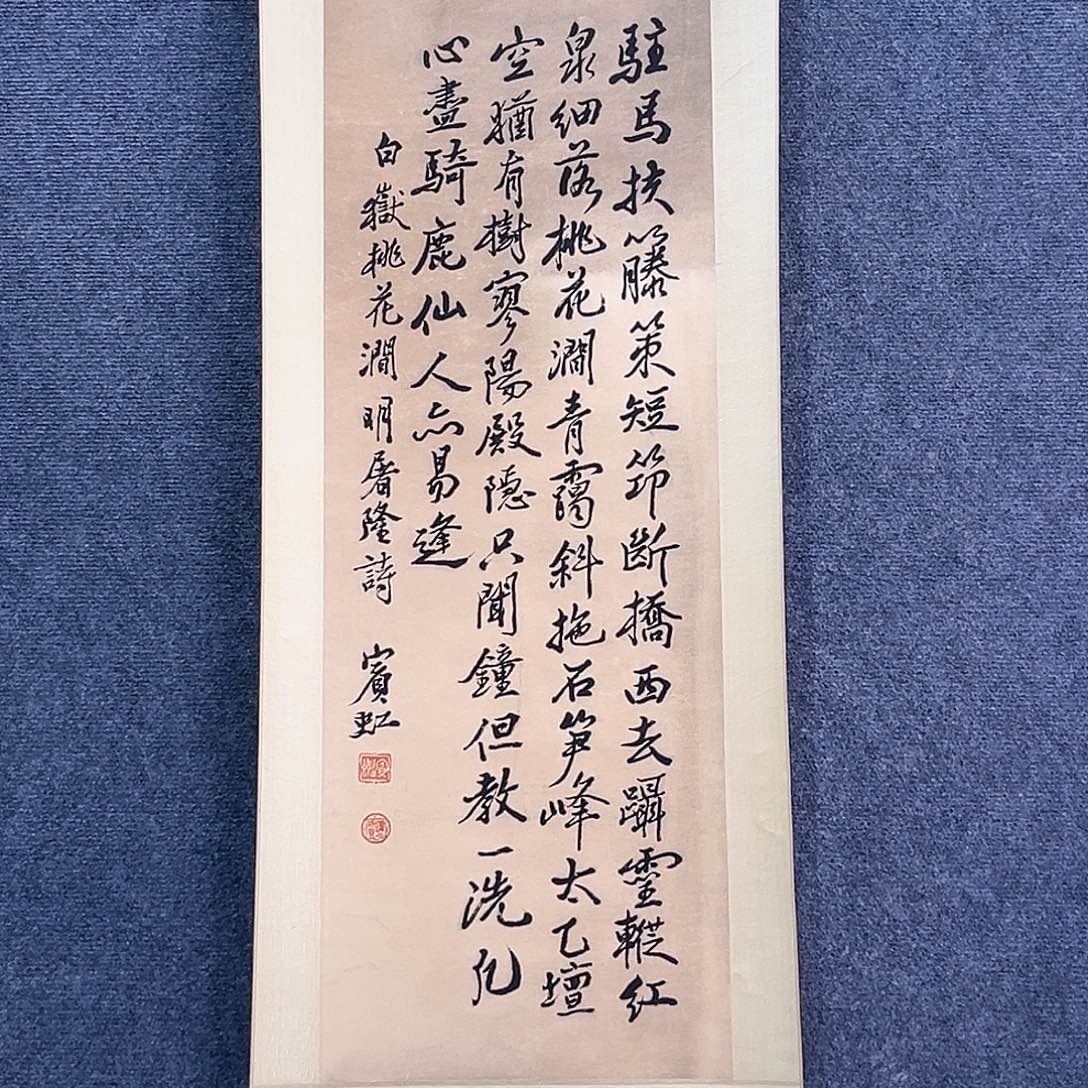 駐馬扶籐策短筇斷橋西去躡靈蹤紅
泉細落桃花澗青靄斜拖石筍峰太乙壇
空猶有樹寥陽殿隱只聞鐘但教一洗凡
心盡騎鹿仙人亦易逢
白嶽桃花澗明屠隆詩
賓虹